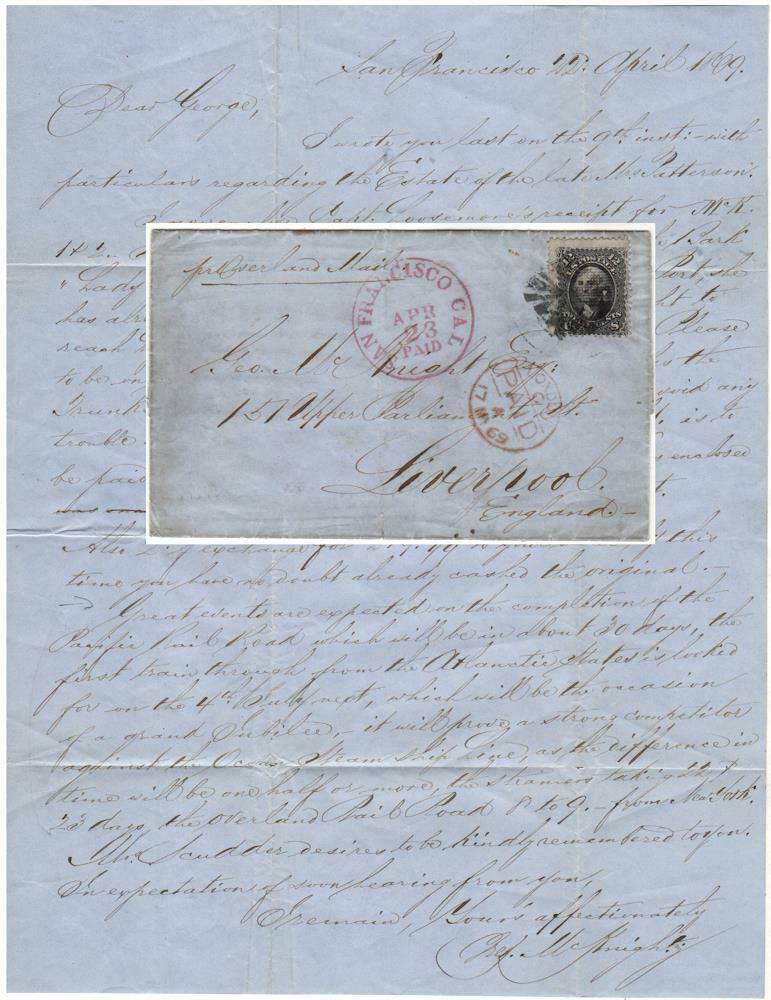 San Francisco 22 April 1869.
Dear George,
I wrote you last on the 9th inst: – with
particulars regarding the Estate of the late Mrs. Patterson.
Capt. Loosemore's receipt for McK.
Bark
"Lady Port, the
has to
reach Please
to be in the
Trunk avoid any
trouble is to
be paid enclosed
was
pr Overland Mail
SAN FRANCISCO CAL.
APR
23
PAID
12 12
U.S. POSTAGE
U S
Geo. McKnight Esq:
LONDON
PAID
17 MY 69
157 Upper Parliament St.
Liverpool.
England. –
Also exchange for this
time you have no doubt already cashed the original. –
Great events are expected on the completion of the
Pacific Rail Road which will be in about 30 days, the
first train through from the Atlantic States is looked
for on the 4th July next, which will be the occasion
of a grand Jubilee, – it will prove a strong competitor
against the Ocean Steam Ship line, as the difference in
time will be one half or more, the steamers taking 22 &
23 days, the Overland Rail Road 8 to 9. – from New York.
Mr. Scudder desires to be kindly remembered to you.
In expectation of soon hearing from you,
I remain, Your's affectionately
McKnight